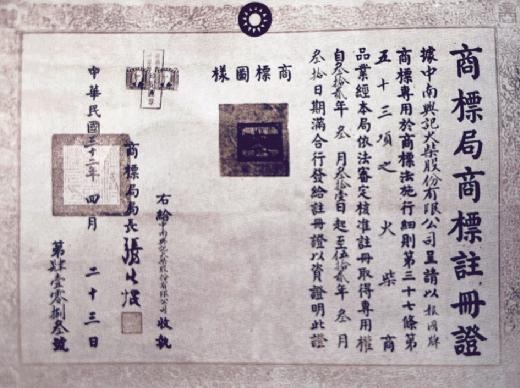 商標局商標註冊證
據中南興記火柴股份有限公司呈請以報國牌
商標專用於商標法施行細則第三十七條第
五十三項之火柴商
品業經本局依法審定核准註冊取得專用權
自叁拾貳年叁月叁拾壹日起至伍拾貳年叁月
叁拾日期滿合行發給註冊證以資證明此證
商標圖樣
右給中南興記火柴股份有限公司收執
商標局局長
中華民國三十二年四月二十三日
第肆壹零捌叁號